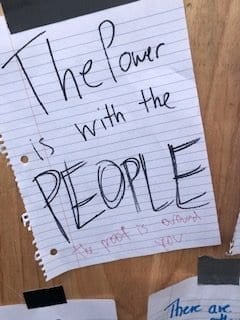 The Power
is with the
PEOPLE
the proof is around
you
There are